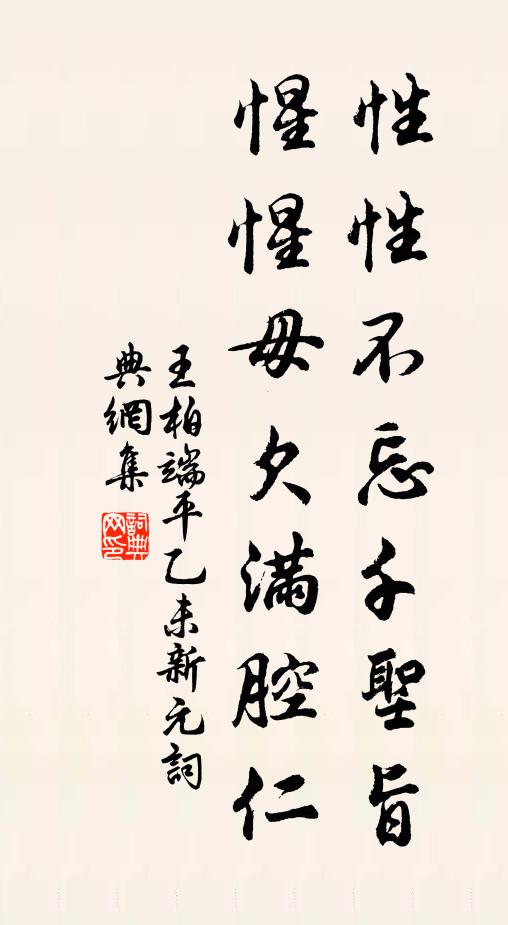 性性不忘千聖旨
惺惺毋欠滿腔仁
王柏端平乙未新元詞
典網集
詞典網印